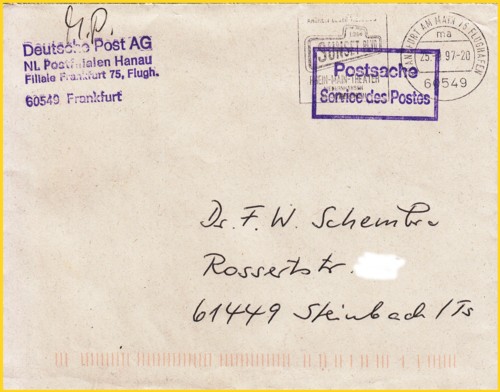 Deutsche Post AG
Nl. Postfilialen Hanau
Filiale Frankfurt 75, Flugh.
60549 Frankfurt
SUNSET BLVD
RHEIN-MAIN-THEATER
FRANKFURT AM MAIN 75 FLUGHAFEN
ma
97-20
60549
Postsache
Service des Postes
Dr. F. W. Schembra
Rossertstr.
61449 Steinbach/Ts